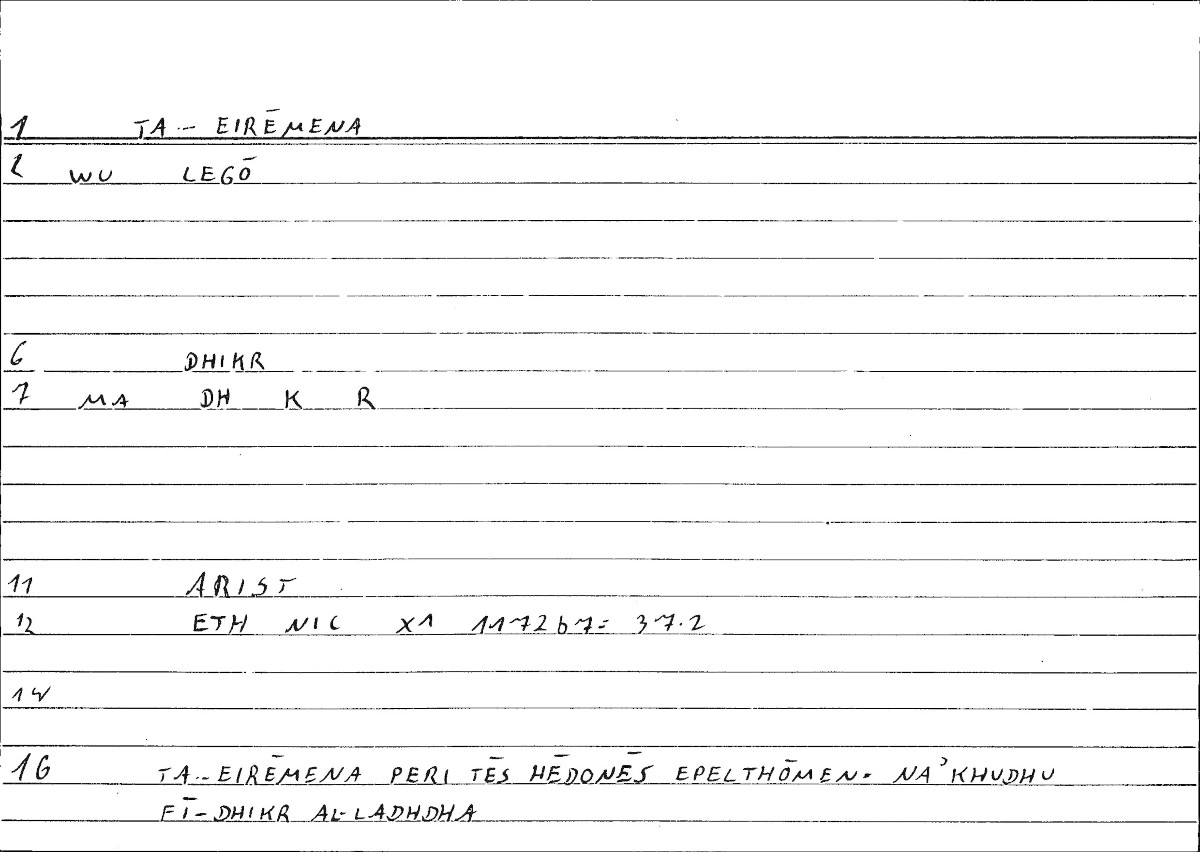 1 TA-- EIRĒMENA
2 WU LEGŌ
6 DHIKR
7 MA DH K R
11 ARIST
12 ETH NIC X1 1172b7= 37.2
14
16 TA--EIRĒMENA PERI TĒS HĒDONĒS EPELTHŌMEN. NAʾKHUDHU
FĪ-DHIKR AL-LADHDHA